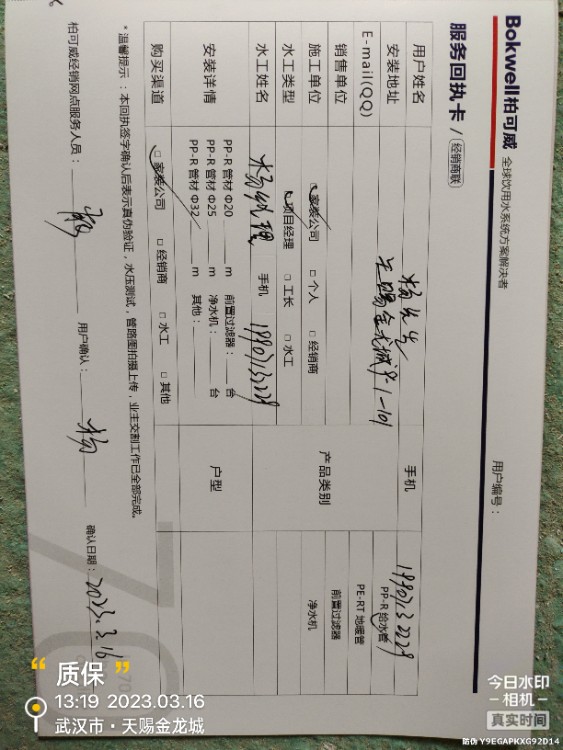 Bokwell柏可威 全球饮用水系统方案解决者
服务回执卡 / 经销商联
用户编号：
用户姓名 杨先生 手机 19907132229
安装地址 天赐金龙城9-1-101
E-mail(QQ)
销售单位
施工单位 家装公司 □ 个人 □ 经销商
产品类别
PP-R 给水管
PE-RT 地暖管
前置过滤器
净水机
水工类型 项目经理 □ 工长 □ 水工
水工姓名 杨经理 手机 19907132229
安装详情
PP-R 管材 Φ20 m 前置过滤器： 台
PP-R 管材 Φ25 m 净水机： 台
PP-R 管材 Φ32 m 其他：
户型
购买渠道 □ 家装公司 □ 经销商 □ 水工 □ 其他
* 温馨提示：本回执签字确认后表示真伪验证，水压测试，管路图拍摄上传，业主交割工作已全部完成。
柏可威经销网点服务人员： 杨 用户确认： 杨 确认日期： 2023.3.16
质保
13:19 2023.03.16
武汉市·天赐金龙城
今日水印
相机
真实时间
防伪 Y9EGAPKXG92D14